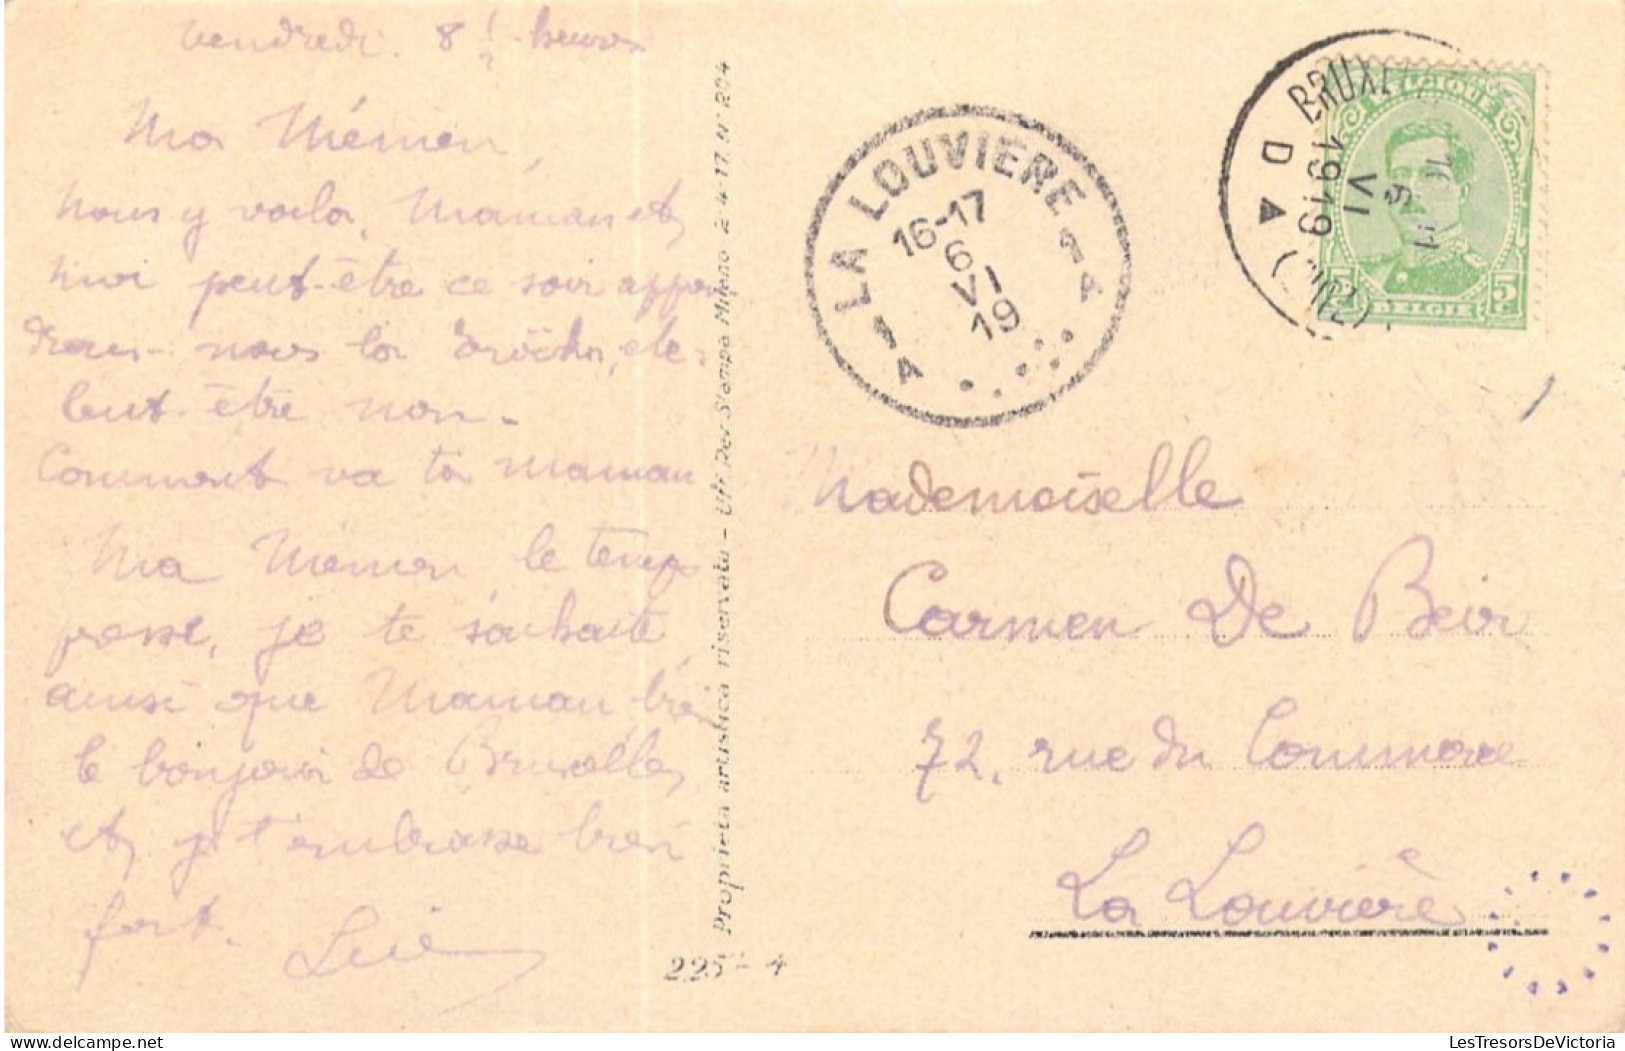 Vendredi. 8 1/2 heures
Ma Mémen,
Nous y voila, Maman et
moi peut-être ce soir appren
drons-nous la
peut-être non -
Comment va ta maman
Ma Mémen le temps
passe, je te souhaite
ainsi que Maman bien
le bonjour de Bruxelles
et je t'embrasse bien
fort.
Proprietà artistica riservata - Uff. Rev. Stampa Milano 2-4-17. N. 204
225-4
LA LOUVIERE
16-17
6
VI
19
1 A
1 A
BRUXEL
1919
VI
6
D A
BELGIQUE
5 c
BELGIE
5 c
Mademoiselle
Carmen De Beir
72, rue du Commerce
La Louvière
LesTresorsDeVictoria